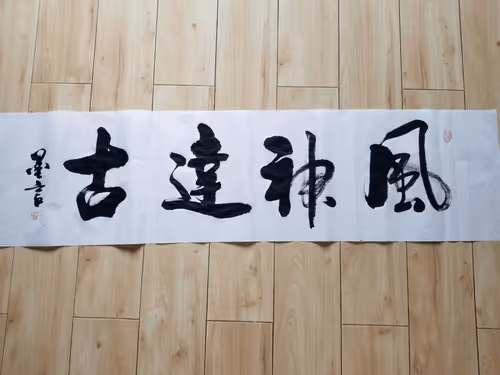 風神達古
墨言